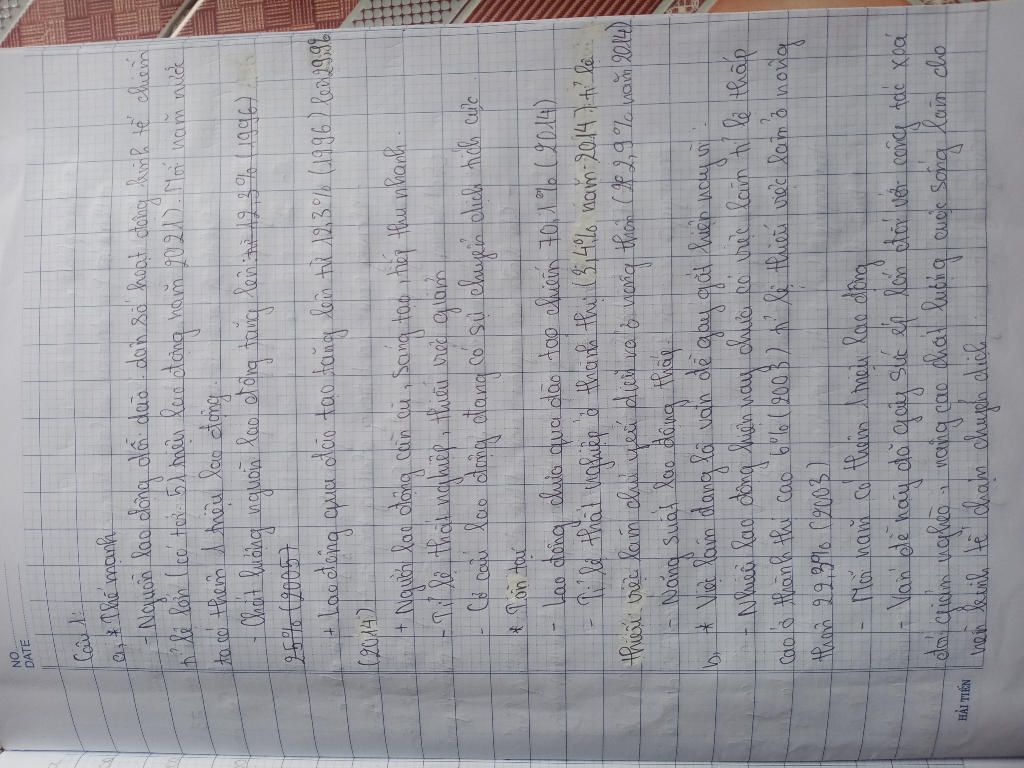 NO.
DATE
Câu 1:
a, * Thế mạnh
- Nguồn lao động dồi dào, dân số hoạt động kinh tế chiến
tỉ lệ lớn (có tới 51 triệu lao động năm 2021). Mỗi năm nước
ta có thêm 1 triệu lao động.
- Chất lượng nguồn lao động tăng lên từ 12,3% (1996)
25% (2005)
+ Lao động qua đào tạo tăng lên từ 12,3% (1996) lên 29,9%
(2014)
+ Người lao động cần cù, sáng tạo, tiếp thu nhanh.
- Tỉ lệ thất nghiệp, thiếu việc giảm
- Cơ cấu lao động đang có sự chuyển dịch tích cực.
* Tồn tại
- Lao động chưa qua đào tạo chiến 70,1% (2014)
- Tỉ lệ thất nghiệp ở thành thị (3,4% năm 2014). tỉ lệ
thiếu việc làm chủ yếu diễn ra ở nông thôn (2,9% năm 2014)
- Năng suất lao động thấp.
b, * Việc làm đang là vấn đề gay gắt hiện nay vì:
- Nhiều lao động hiện nay chưa có việc làm tỉ lệ thấp
cao ở thành thị cao 6% (2003), tỉ lệ thiếu việc làm ở nông
thôn 22,3% (2003)
- Mỗi năm có thêm 1 triệu lao động
- Vấn đề này đã gây sức ép lớn đối với công tác xoá
đói giảm nghèo, nâng cao chất lượng cuộc sống làm cho
nền kinh tế chậm chuyển dịch.
HẢI TIẾN